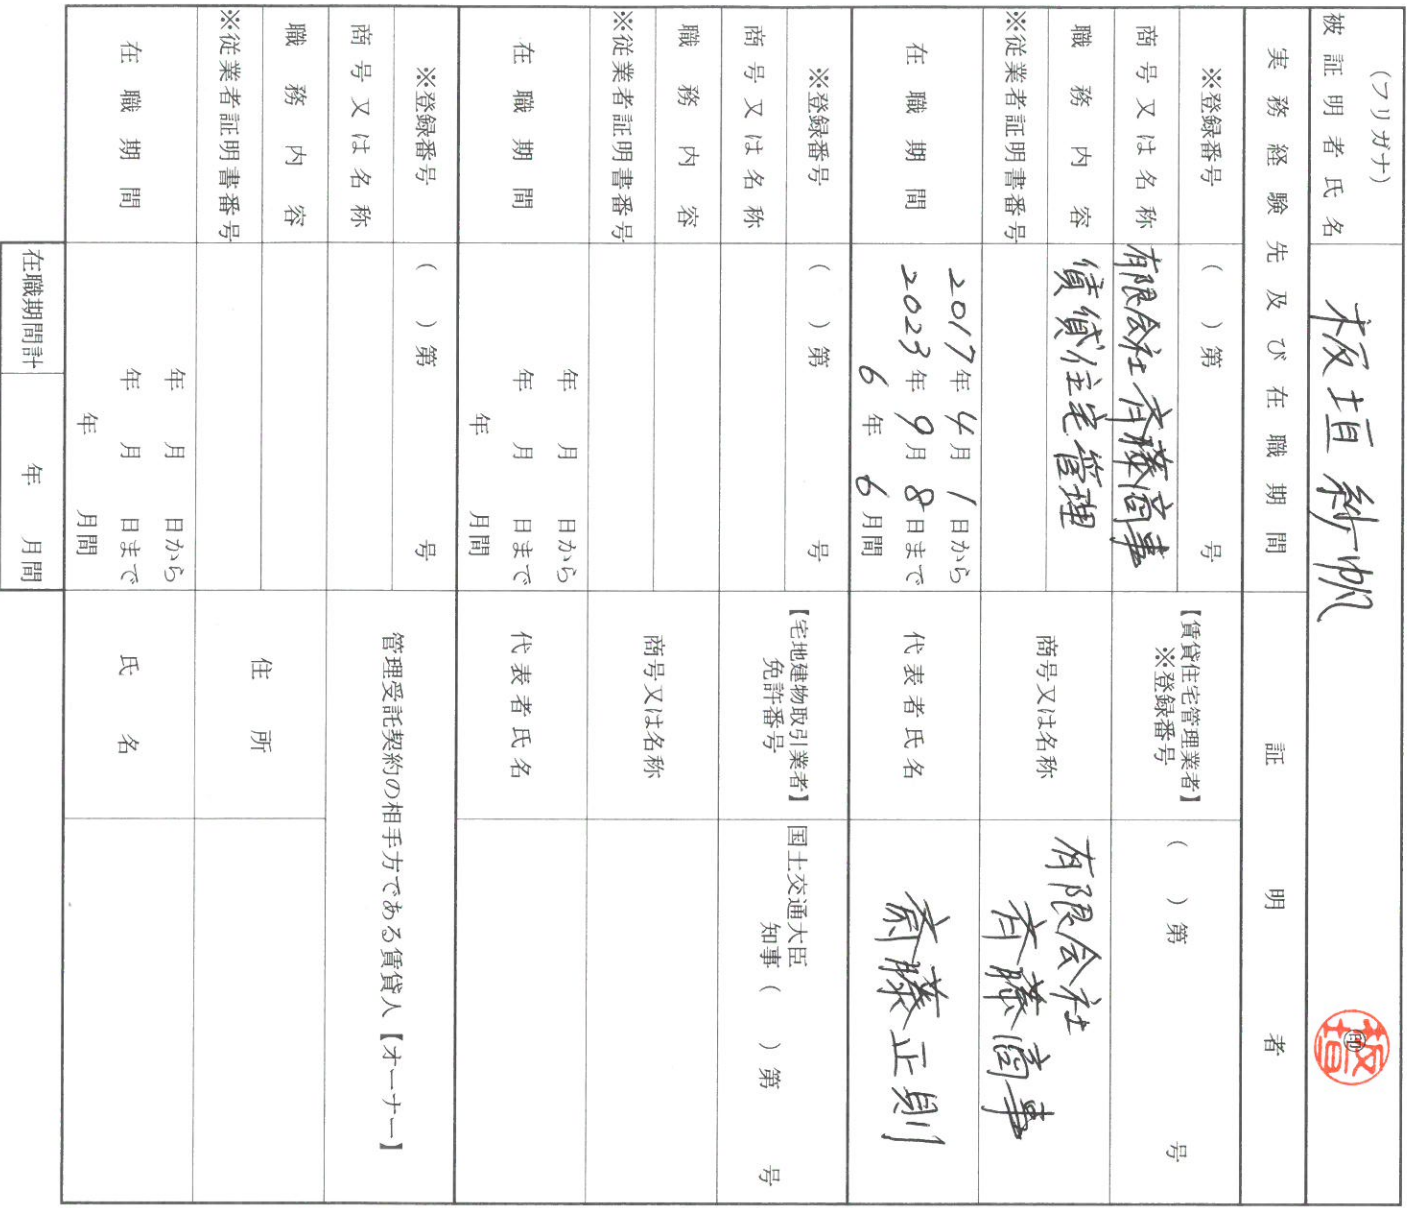 (フリガナ)
被証明者氏名 板垣 紗帆 ㊞ 板垣
実務経験先及び在職期間
証明者
※登録番号 ( )第 号
商号又は名称 有限会社 斉藤商事
職務内容 賃貸住宅管理
※従業者証明書番号
在職期間
2017年4月1日から
2023年9月8日まで
6年6月間
【賃貸住宅管理業者】
※登録番号
( )第 号
商号又は名称
有限会社
斉藤商事
代表者氏名 齋藤正則
※登録番号 ( )第 号
商号又は名称
職務内容
※従業者証明書番号
在職期間
年 月 日から
年 月 日まで
年 月間
【宅地建物取引業者】
免許番号
国土交通大臣
知事 ( )第 号
商号又は名称
代表者氏名
※登録番号 ( )第 号
商号又は名称
職務内容
※従業者証明書番号
在職期間
年 月 日から
年 月 日まで
年 月間
管理受託契約の相手方である賃貸人【オーナー】
住所
氏名
在職期間計 年 月間